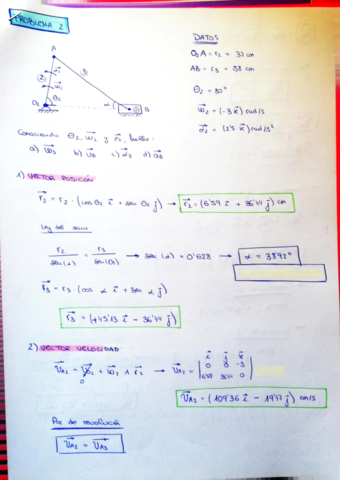 PROBLEMA 2
DATOS
O₂A = r₂ = 37 cm
AB = r₃ = 58 cm
θ₂ = 80°
ω₂ = (-3 k) rad/s
α₂ = (25 k) rad/s²
A
B
O₂
θ₂
Conociendo θ₂, ω₂ y α₂, hallar:
a) ω₃ b) v_B c) α₃ d) a_B
1) VECTOR POSICIÓN
r₂ = r₂ · (cos θ₂ i + sen θ₂ j) → r₂ = (6'59 i + 36'44 j) cm
Ley del seno
r₂ / sen(α) = r₃ / sen(θ₂) → sen (α) = 0'628 → α = 38'92°
r₃ = r₃ · (cos α i + sen α j)
r₃ = (+45'13 i - 36'44 j)
2) VECTOR VELOCIDAD
v_A₂ = v_O₂ + ω₂ ∧ r₂ → v_A₂ = | i j k |
0
0 0 -3
6'59 36'44 0
v_A₂ = (109'36 i - 19'77 j) cm/s
Par de revolución
v_A₂ = v_A₃